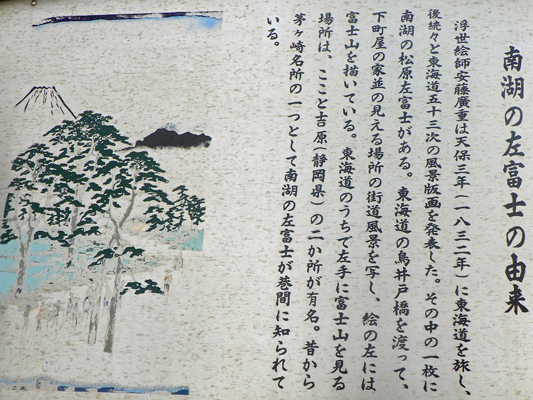 南湖の左富士の由来
浮世絵師安藤廣重は天保三年(一八三二年)に東海道を旅し、
後続々と東海道五十三次の風景版画を発表した。その中の一枚に
南湖の松原左富士がある。東海道の鳥井戸橋を渡って、
下町屋の家並の見える場所の街道風景を写し、絵の左には
富士山を描いている。東海道のうちで左手に富士山を見る
場所は、ここと吉原(静岡県)の二か所が有名。昔から
茅ヶ崎名所の一つとして南湖の左富士が巷間に知られて
いる。